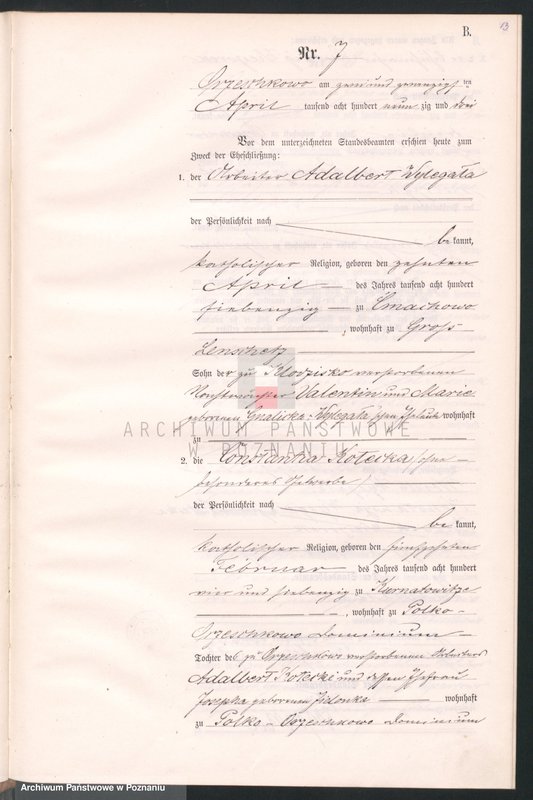 B.
13
Nr. 7
Orzeschkowo am zwei und zwanzigsten
April tausend acht hundert neun zig und drei
Vor dem unterzeichneten Standesbeamten erschien heute zum
Zweck der Eheschließung:
1. der Arbeiter Adalbert Wylegała
der Persönlichkeit nach
be kannt,
katholischer Religion, geboren den zehnten
April des Jahres tausend acht hundert
siebenzig zu Cmachowo
, wohnhaft zu Gross
Lenschetz
Sohn der zu Klodzisko verstorbenen
Valentin und Marie
geborenen Wylegała'schen Eheleute wohnhaft
zu
ARCHIWUM PAŃSTWOWE
W POZNANIU
2. die Constantia Kotecka (ohne
besonderes Gewerbe)
der Persönlichkeit nach
be kannt,
katholischer Religion, geboren den fünfzehnten
Februar des Jahres tausend acht hundert
vier und siebenzig zu Kurnatowitze
, wohnhaft zu Polko-
Orzeschkowo Dominium
Tochter des zu Orzeschkowo verstorbenen Arbeiters
Adalbert Kotecki und dessen Ehefrau
Josepha geborenen wohnhaft
zu Polko-Orzeschkowo Dominium
Archiwum Państwowe w Poznaniu